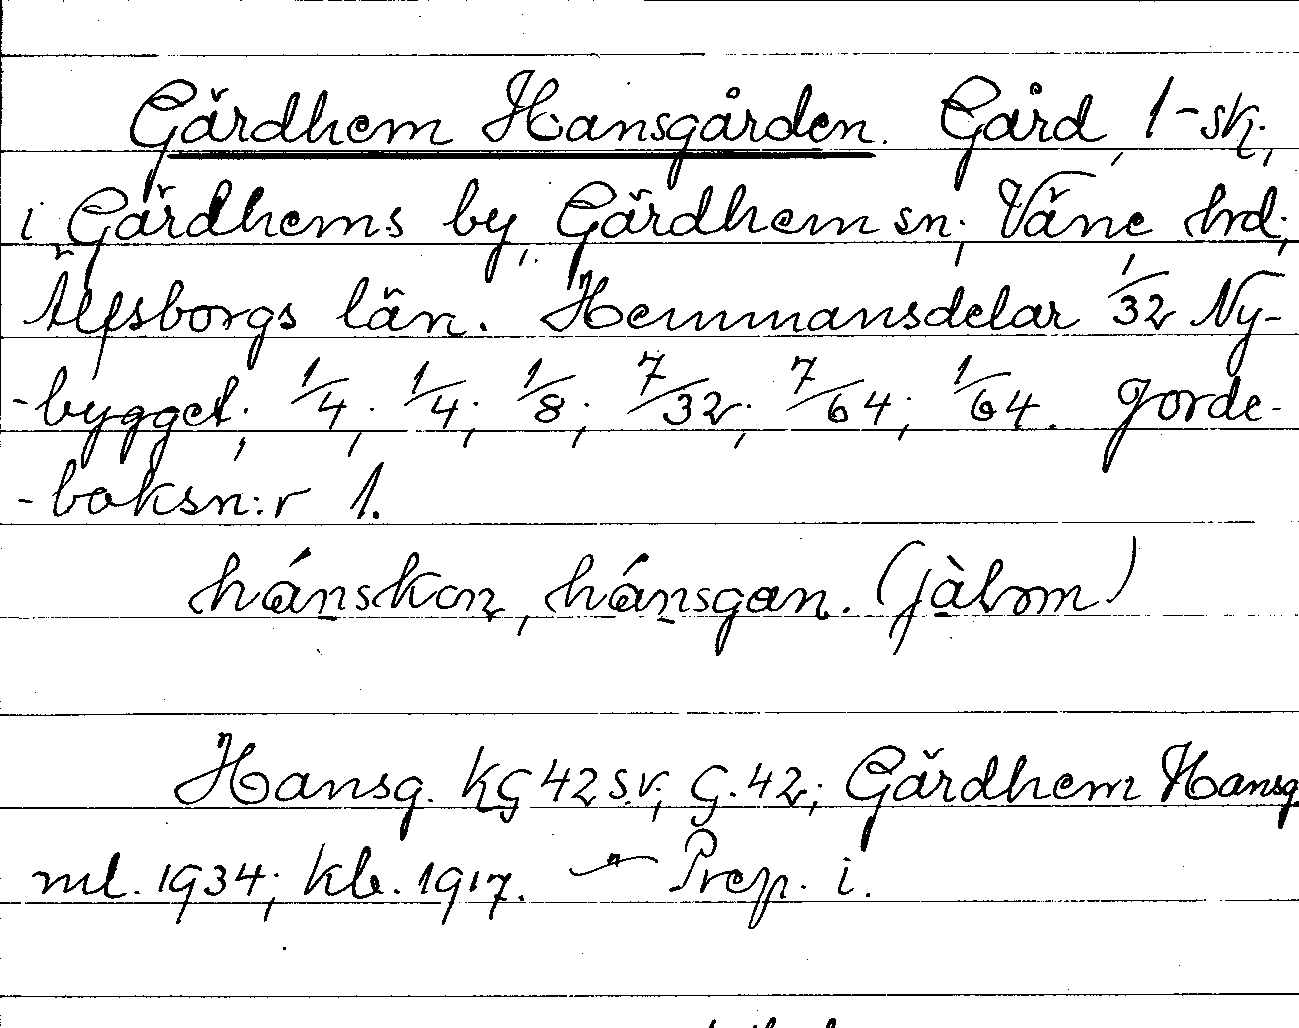 Gärdhem Hansgården. Gård, 1-sk.,
i Gärdhems by, Gärdhem sn; Väne hrd;
Älfsborgs län. Hemmansdelar 1/32 Ny-
-bygget; 1/4; 1/4; 1/8; 7/32; 7/64; 1/64. Jorde-
-boksn:r 1.
hánskan, hánsgan. (jàlom)
Hansg. KG 42 s.v; G. 42; Gärdhem Hansg.
ml. 1934; kb. 1917. — Prep. i.